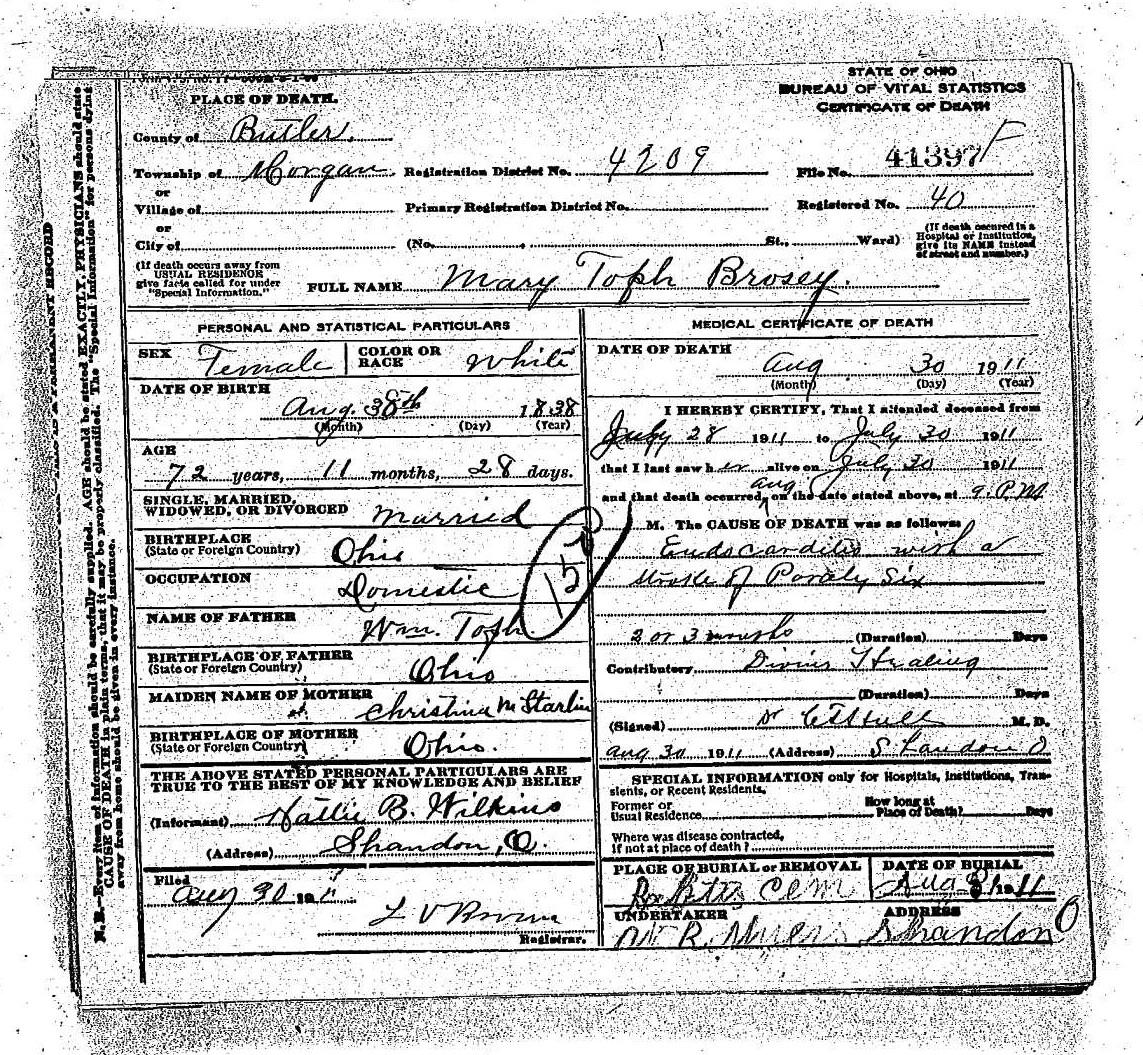 STATE OF OHIO
BUREAU OF VITAL STATISTICS
CERTIFICATE OF DEATH
PLACE OF DEATH.
County of Butler.
Township of Morgan. Registration District No. 4209 File No. 41397 F
or
Village of Primary Registration District No. Registered No. 40
or
City of (No. , St., Ward) (If death occured in a Hospital or Institution, give its NAME instead of street and number.)
(If death occurs away from USUAL RESIDENCE give facts called for under "Special Information.")
FULL NAME Mary Toph Brosey.
PERSONAL AND STATISTICAL PARTICULARS
SEX Female COLOR OR RACE White
DATE OF BIRTH
Aug. 1838
(Month) (Day) (Year)
AGE
72 years, 11 months, 28 days.
SINGLE, MARRIED,
WIDOWED, OR DIVORCED Married
BIRTHPLACE
(State or Foreign Country) Ohio
OCCUPATION
Domestic
NAME OF FATHER
Wm. Toph
BIRTHPLACE OF FATHER
(State or Foreign Country) Ohio
MAIDEN NAME OF MOTHER
Christina McStarlin
BIRTHPLACE OF MOTHER
(State or Foreign Country) Ohio.
THE ABOVE STATED PERSONAL PARTICULARS ARE
TRUE TO THE BEST OF MY KNOWLEDGE AND BELIEF
(Informant) Hattie B. Wilkins
(Address) Shandon, O.
Filed
Aug 30 191
L V
Registrar.
MEDICAL CERTIFICATE OF DEATH
DATE OF DEATH
Aug 30 1911
(Month) (Day) (Year)
I HEREBY CERTIFY, That I attended deceased from
July 28 1911 to July 30 1911
that I last saw her alive on July 30 1911
aug
and that death occurred, on the date stated above, at 9. P.M
M. The CAUSE OF DEATH was as follows:
Endocarditis with a
stroke of Paraly Six
2 or 3 months (Duration) Days
Contributory Divine Healing
(Duration) Days
(Signed) Dr M. D.
Aug 30 1911 (Address) Shandon O
SPECIAL INFORMATION only for Hospitals, Institutions, Transients, or Recent Residents.
Former or
Usual Residence
How long at
Place of Death? Days
Where was disease contracted,
If not at place of death?
PLACE OF BURIAL or REMOVAL DATE OF BURIAL
Cem Aug 31 1911
UNDERTAKER ADDRESS
R. Shandon O
N. B.—Every item of information should be carefully supplied. AGE should be stated EXACTLY. PHYSICIANS should state
CAUSE OF DEATH in plain terms, that it may be properly classified. The "Special Information" for persons dying
away from home should be given in every instance.